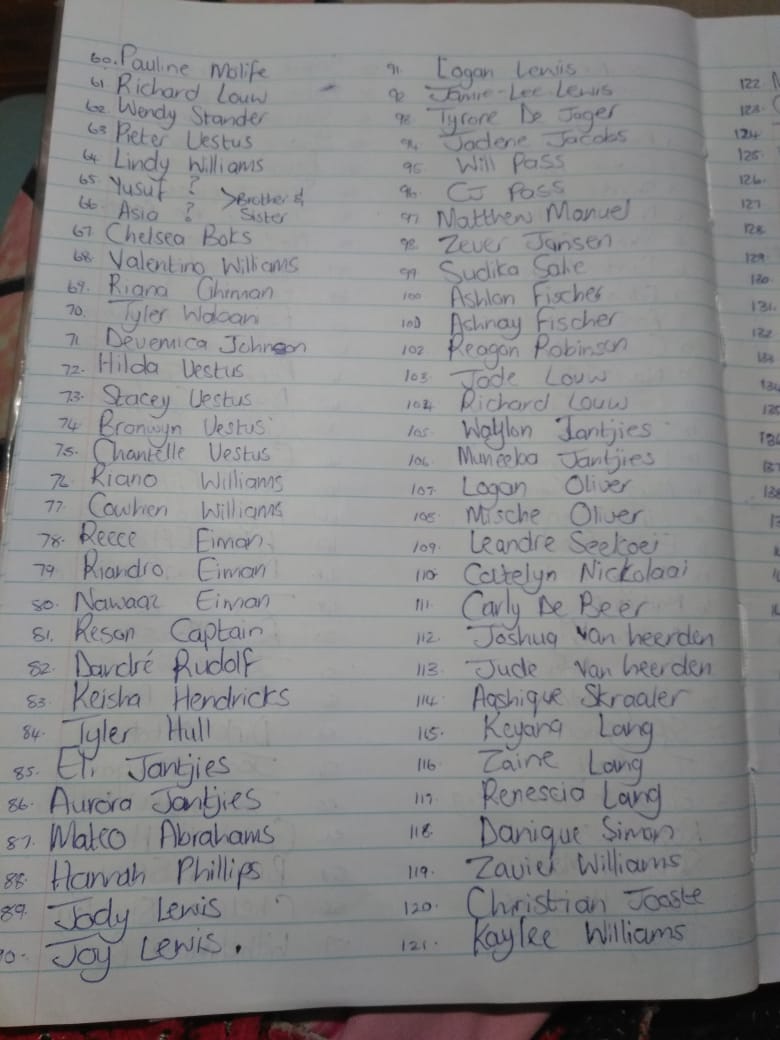 60. Pauline Molife
61 Richard Louw
62 Wendy Stander
63 Pieter Vestus
64 Lindy Williams
65. Yusuf ?
66. Asia ? >Brother & Sister
67. Chelsea Boks
68. Valentino Williams
69. Riana
70. Tyler
71 Johnson
72. Hilda Vestus
73. Stacey Vestus
74. Bronwyn Vestus
75. Chantelle Vestus
76. Riano Williams
77. Cowhen Williams
78. Reece Eiman
79 Riandro Eiman
80. Nawaaz Eiman
81. Reson Captain
82. Dandré Rudolf
83. Keisha Hendricks
84. Tyler Hull
85. Eli Jantjies
86. Aurora Jantjies
87. Mateo Abrahams
88. Hannah Phillips
89. Jody Lewis
90. Joy Lewis.
91. Logan Lewis
92 Jamie-Lee Lewis
93. Tyrone De Jager
94. Jadene Jacobs
95. Will Pass
96. CJ Pass
97. Matthew Manuel
98. Zever Jansen
99. Sudika Salie
100 Ashlan Fischer
101 Ashnay Fischer
102. Reagan Robinson
103. Jade Louw
104. Richard Louw
105. Waylon Jantjies
106. Muneeba Jantjies
107. Logan Oliver
108. Mische Oliver
109. Leandre Seekoei
110. Cattelyn Nickolaai
111. Carly De Beer
112. Joshua Van heerden
113. Jude Van heerden
114. Aashique Skraaler
115. Keyana Lang
116 Zaine Lang
117. Renescia Lang
118. Danique Simon
119. Zavier Williams
120. Christian Jooste
121. Kaylee Williams
122.
123.
124
125.
126.
127
128.
129.
130.
131.
132
133